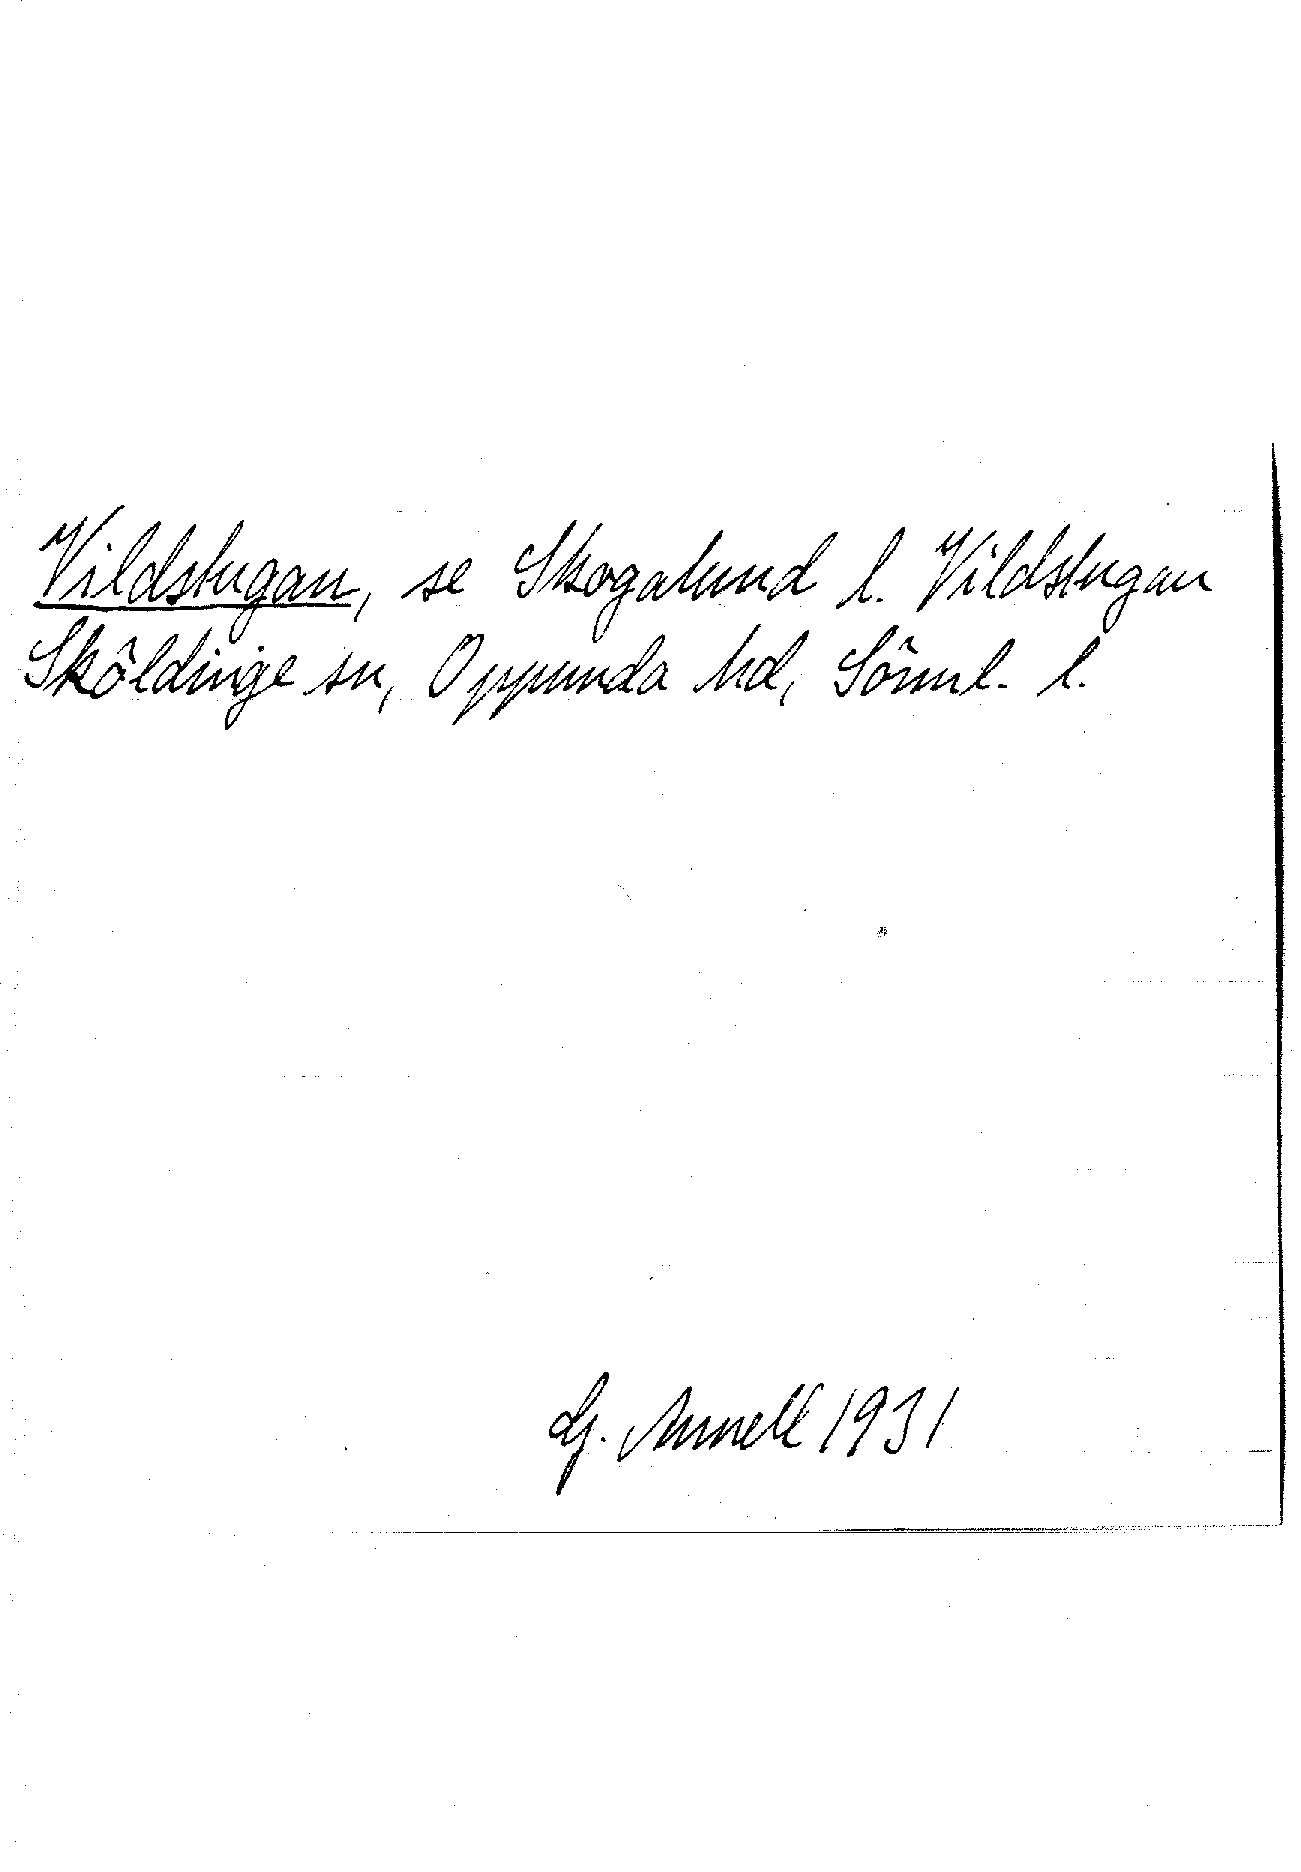 Vildstugan, se Skogalund l. Vildstugan
Sköldinge sn, Oppunda hd, Sörml. l.
G. Annell 1931